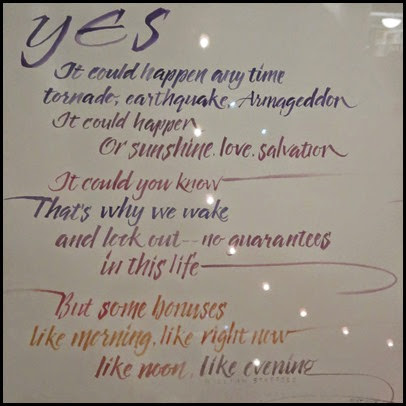 YES
It could happen any time
tornado, earthquake, Armageddon
It could happen
Or sunshine, love, salvation
It could you know
That's why we wake
and look out--no guarantees
in this life
But some bonuses
like morning, like right now
like noon, like evening